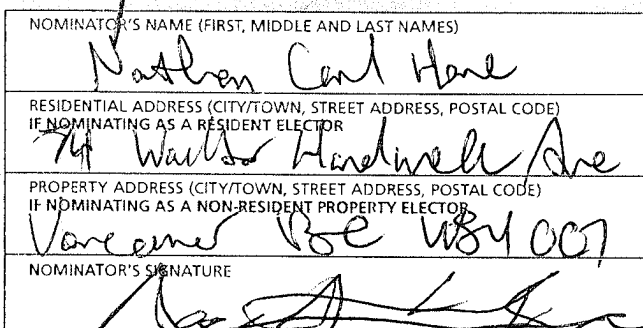 NOMINATOR'S NAME (FIRST, MIDDLE AND LAST NAMES)
Nathan Carl Hare
RESIDENTIAL ADDRESS (CITY/TOWN, STREET ADDRESS, POSTAL CODE)
IF NOMINATING AS A RESIDENT ELECTOR
Walter Hardwick Ave
PROPERTY ADDRESS (CITY/TOWN, STREET ADDRESS, POSTAL CODE)
IF NOMINATING AS A NON-RESIDENT PROPERTY ELECTOR
Vancouver BC
NOMINATOR'S SIGNATURE